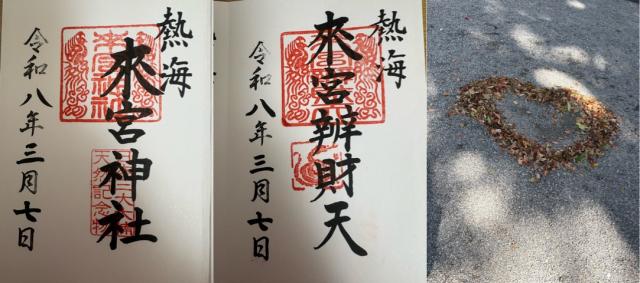 熱海
來宮神社
令和八年三月七日
天然記念物
熱海
來宮辨財天
令和八年三月七日